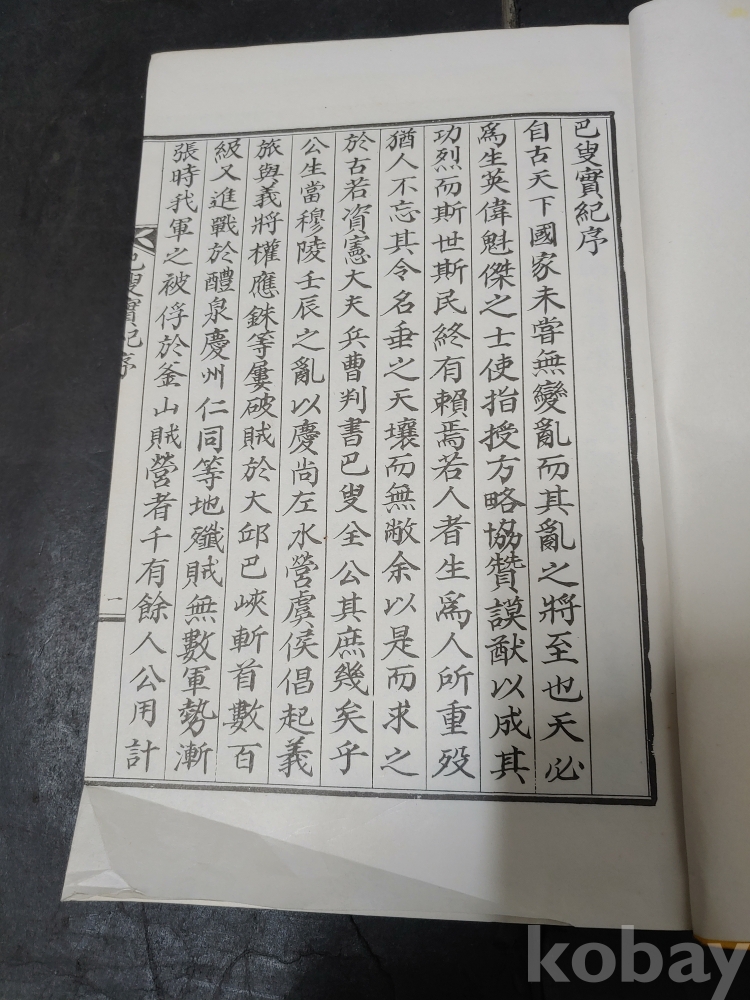 巴叟實紀序
自古天下國家未嘗無變亂而其亂之將至也天必
爲生英偉魁傑之士使指授方略協贊謨猷以成其
功烈而斯世斯民終有賴焉若人者生爲人所重歿
猶人不忘其令名垂之天壤而無敝余以是而求之
於古若資憲大夫兵曹判書巴叟全公其庶幾矣乎
公生當穆陵壬辰之亂以慶尙左水營虞侯倡起義
旅與義將權應銖等屢破賊於大邱巴峽斬首數百
級又進戰於醴泉慶州仁同等地殲賊無數軍勢漸
張時我軍之被俘於釜山賊營者千有餘人公用計
巴叟實紀序
一
kobay